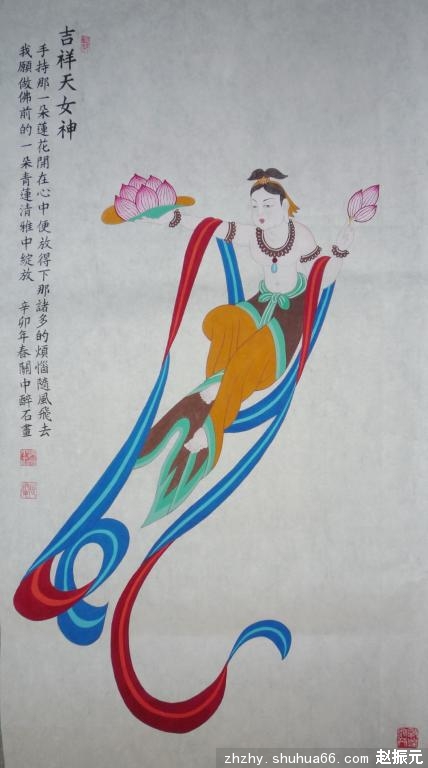 吉祥天女神
手持那一朵蓮花開在心中便放得下那諸多的煩惱隨風飛去
我願做佛前的一朵青蓮清雅中綻放 辛卯年春關中醉石畫
zhzhy.shuhua66.com 赵振元